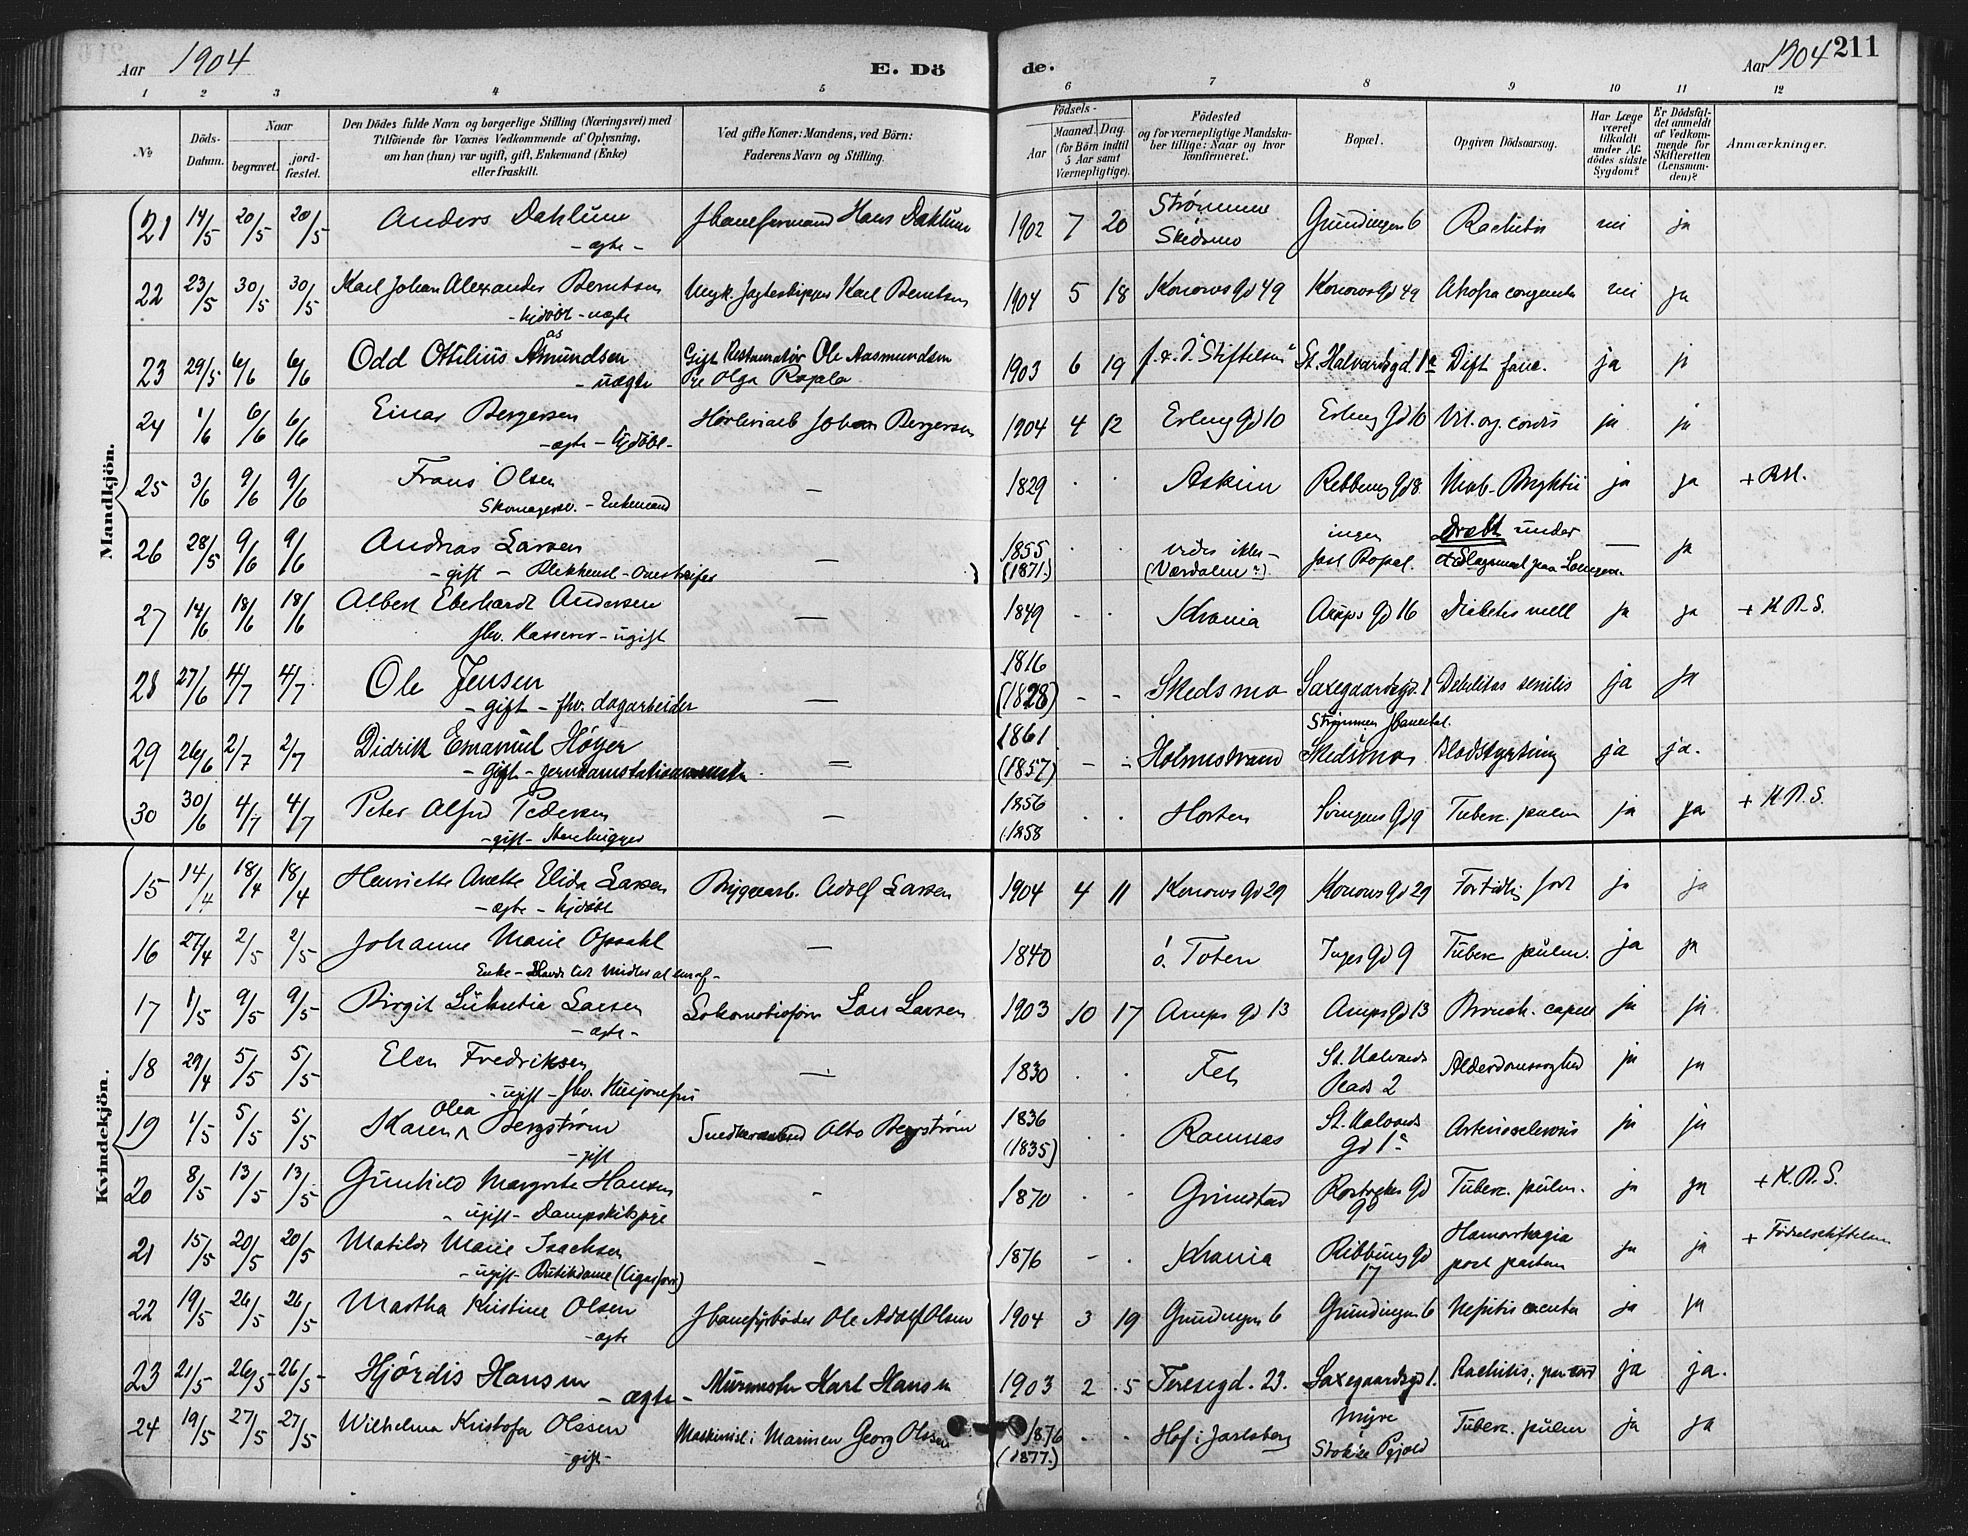 Aar 1904 E. Dö de. Aar 1904 211
1 2 3 4 5 6 7 8 9 10 11 12
№ Döds-Datum. Naar begravet. jord-fæstet. Den Dödes fulde Navn og borgerlige Stilling (Næringsvei) med Tilföiende for Voxnes Vedkommende af Oplysning, om han (hun) var ugift, gift, Enkemand (Enke) eller fraskilt. Ved gifte Koner: Mandens, ved Börn: Faderens Navn og Stilling. Födsels- Aar Maaned. Dag. (for Börn indtil 5 Aar samt Værnepligtige). Födested og for værnepligtige Mandska-ber tillige: Naar og hvor konfirmeret. Bopæl. Opgiven Dödsaarsag. Har Læge været tilkaldt under Af-dödes sidste Sygdom? Er Dödsfal-det anmeldt af Vedkom-mende for Skifteretten (Lensman-den)? Anmærkninger.
Mandkjön.
21 14/5 20/5 20/5 Anders Dahlum Hans Dahlum 1902 7 20 Strømmen Grundingen 6 Rachitis nei ja
- ægte - Skedsmo
22 23/5 30/5 30/5 Karl Johan Alexander Berntsen Jagteskipper Karl Berntsen 1904 5 18 Konows Gd 49 Konows Gd 49 nei ja
- hjdøbt - uægte
23 29/5 6/6 6/6 Odd Ottilius Amundsen Gift Restauratør Ole Aasmundsen 1903 6 19 Stiftelsen St. Halvardsgd. 1a Dift fauc. ja ja
as
- uægte Pge Olga
24 1/6 6/6 6/6 Einar Bergersen Johan Bergersen 1904 4 12 Erling Gd 10 Erling Gd 10 Vit. org. cordis ja ja
- ægte - hjdøbt -
25 3/6 9/6 9/6 Frans Olsen — 1829 Askim Ribbung Gd 8 ja ja
Skomagersv. - Enkemand
26 28/5 9/6 9/6 Andras Larsen — 1855 (1871.) vides ikke - (Værdalen?) ingen fast Bopæl. Dræbt under et Slagsmaal paa — ja
- gift - Blikkensl -
27 14/6 18/6 18/6 Albert Eberhardt Andersen — 1849 Krania Arups Gd 16 Diabetes mell ja ja + K.B.S.
fhv. Kasserer - ugift
28 27/6 4/7 4/7 Ole Jensen — 1816 (1828) Skedsmo Saxegaardsgd. 1 Debilitas senilis ja ja
- gift - fhv. dagarbeider
29 26/6 2/7 2/7 Didrik Emanuel Höyer — 1861 (1857) Holmestrand Strømmen Skedsmo Blodstyrtning ja ja.
- gift -
30 30/6 4/7 4/7 Peter Alfred Pedersen — 1856 (1858 Horten Gd 9 Tuberc. pulm ja ja + K.B.S.
- gift - Stenhugger
Kvindekjön.
15 14/4 18/4 18/4 Henriette Anette Elida Larsen Bryggearb. Adolf Larsen 1904 4 11 Konows Gd 29 Konows Gd 29 Fortidlig født ja ja
- ægte - hjdøbt
16 27/4 2/5 2/5 Johanne Marie Opsahl — 1840 ö. Toten Inges Gd 9 Tuberc pulm. ja ja
Enke -
17 1/5 9/5 9/5 Birgit Lukretia Larsen Lars Larsen 1903 10 17 Arups Gd 13 Arups Gd 13 Bronch. capill ja ja
- ægte -
18 29/4 5/5 5/5 Elen Fredriksen — 1830 Fet St. Halvards Plads 2 Alderdomssvaghed ja ja
- ugift - fhv.
19 1/5 5/5 5/5 Karen Olea Bergstrøm Otto Bergstrøm 1836 (1835) Ramnæs St. Halvards Gd 1a Arteriosclerosis ja ja
- gift
20 8/5 13/5 13/5 Gunhild Margrete Hansen - 1870 Grimstad Gd 98 Tuberc. pulm. ja ja + K.B.S.
- ugift - Dampskibspige
21 15/5 20/5 20/5 Matilde Marie Isachsen - 1876 Krania Ribbung Gd 17 Hæmorrhagia post partum ja ja + Fødselsstiftelsen
- ugift - Butikdame
22 19/5 26/5 26/5 Martha Kristine Olsen Jbanefyrbøder Ole Adolf Olsen 1904 3 19 Grundingen 6 Grundingen 6 Nefritis acuta ja ja
- ægte
23 21/5 26/5 26/5 Hjördis Hansen Murmester Karl Hansen 1903 2 5 Teresegd. 23. Saxegaardsgd 1. Rachitis; ja ja.
- ægte -
24 19/5 27/5 27/5 Wilhelma Kristofa Olssen Maskinist i Marinen Georg Olssen 1876 (1877.) Hof i Jarlsberg Myre Stokke Tuberc. pulm ja ja
- gift -